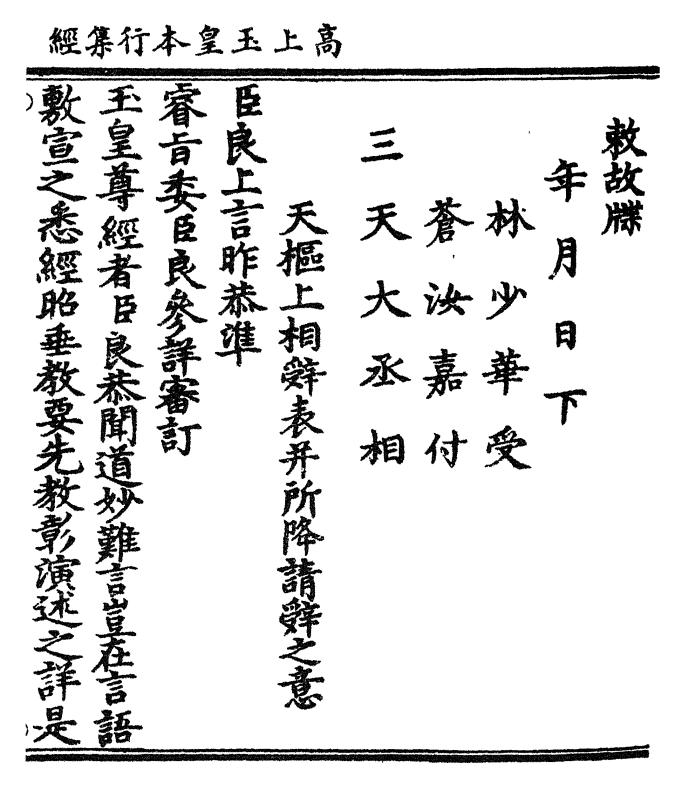 高上玉皇本行集經
敕故牒
年月日下
林少華受
蒼汝嘉付
三天大丞相
天樞上相辤表并所降請辤之意
臣良上言昨恭準
睿旨委臣良參詳審訂
玉皇尊經者臣良恭聞道妙難言豈在言語
敷宣之悉經昭垂教要先教彰演述之詳是